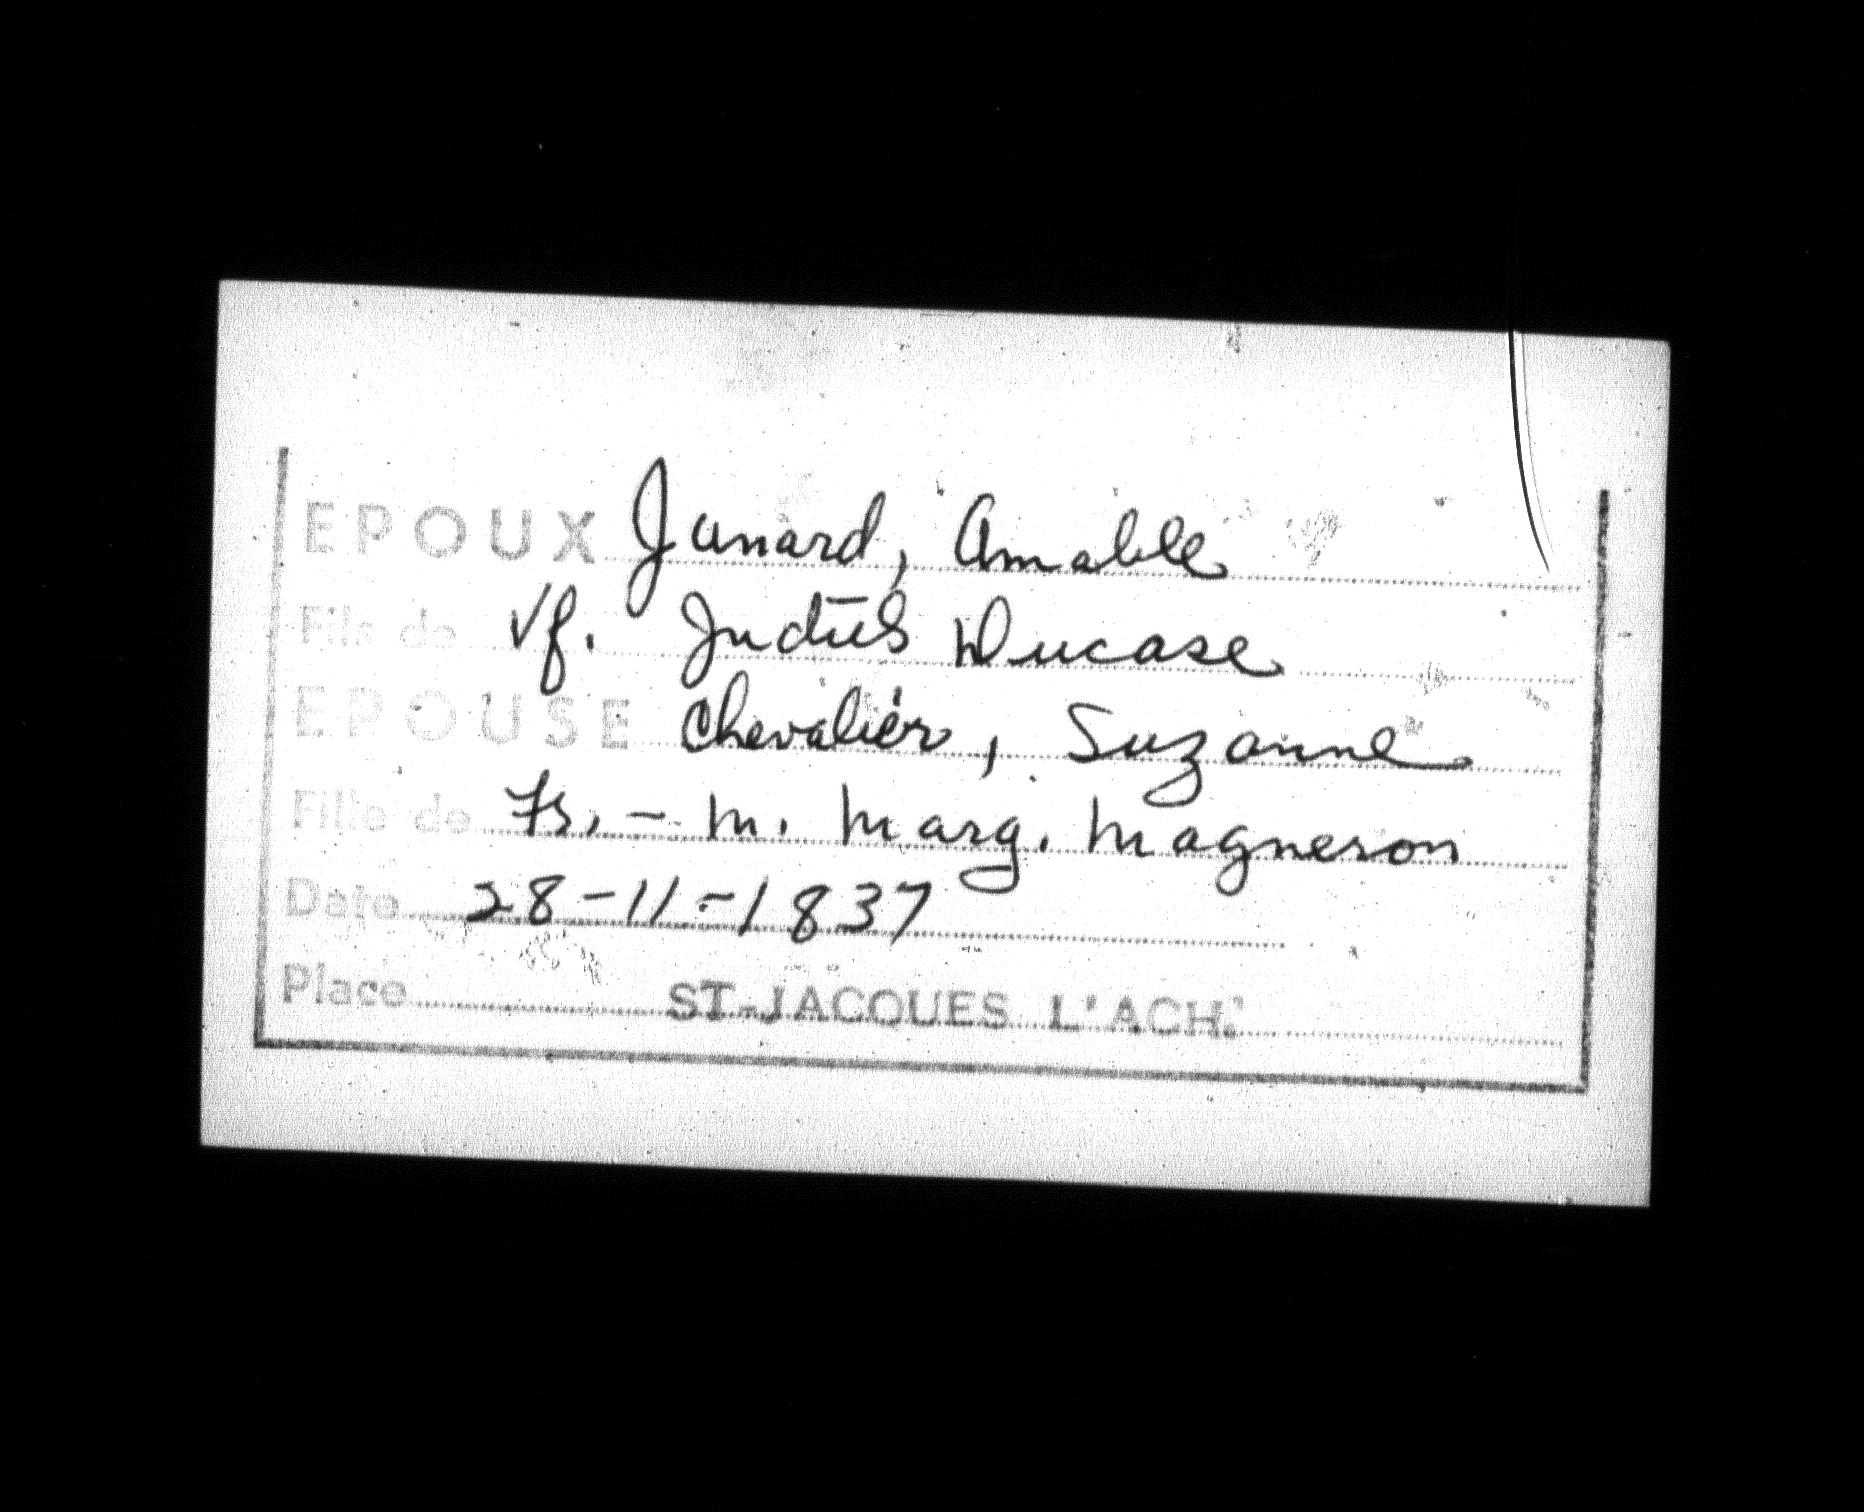 EPOUX Junard, Amable
Fils de Vf. Judith Ducase
EPOUSE Chevalier, Suzanne
Fille de Fs. - M. Marg. Magneson
Date 28-11-1837
Place ST-JACQUES L'ACH.